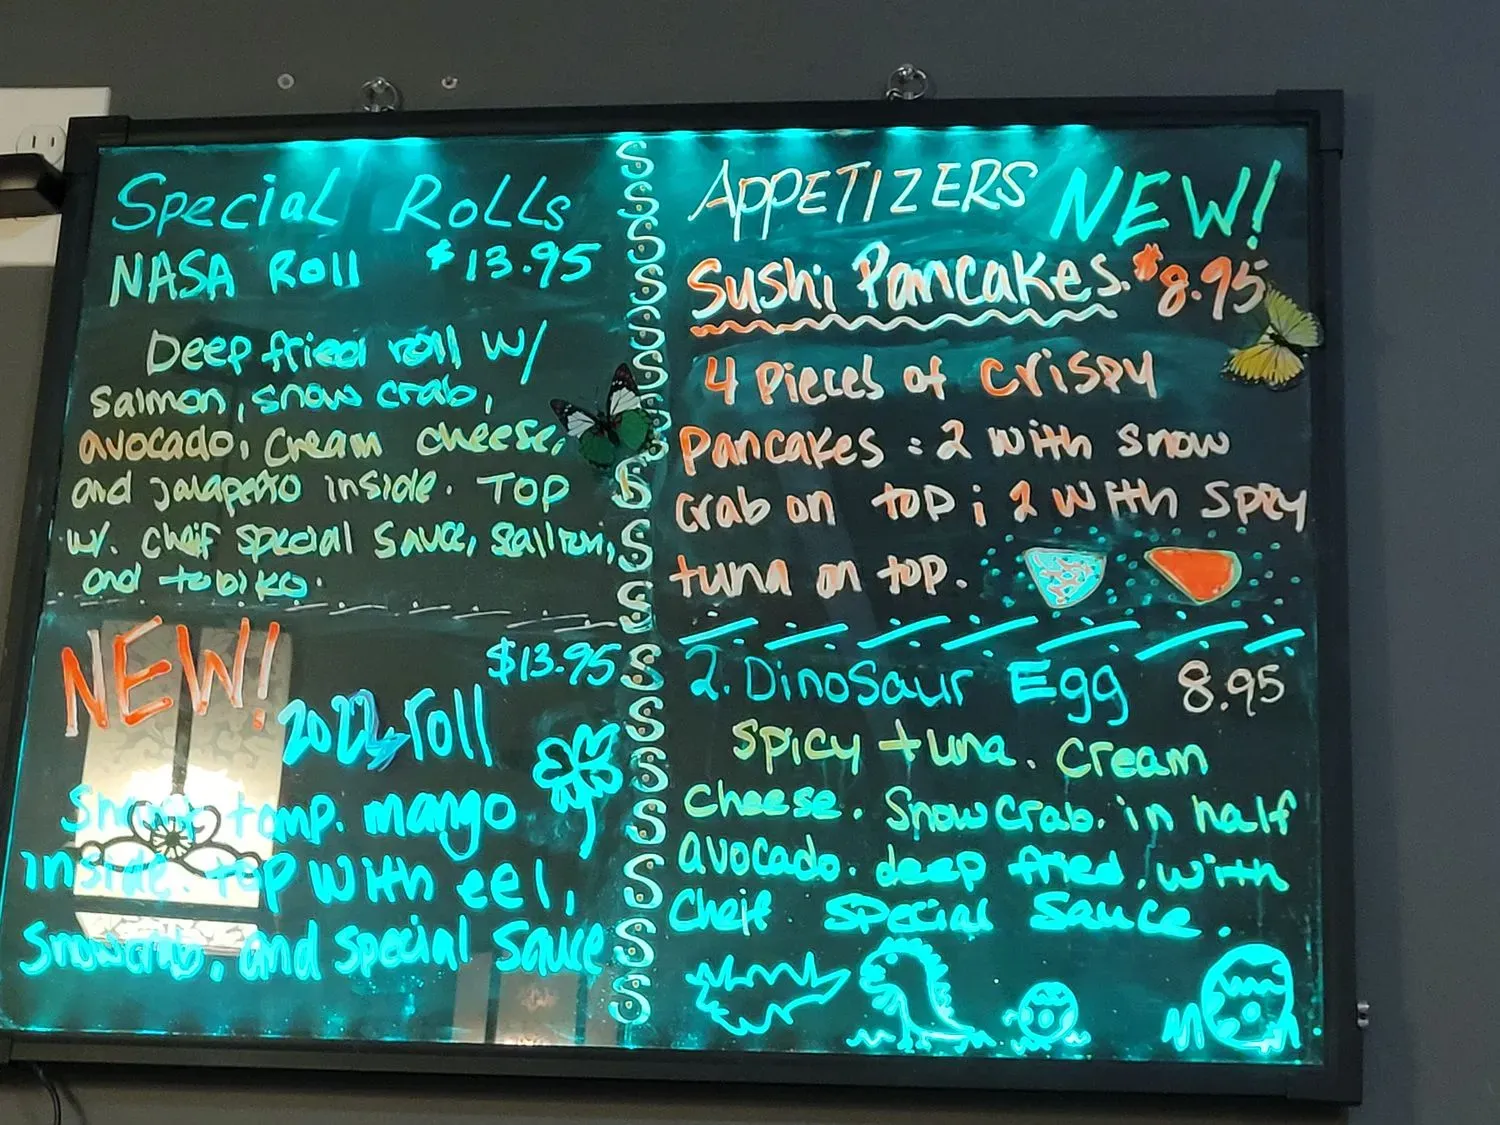 Special Rolls
NASA Roll $13.95
Deep fried roll w/
salmon, snow crab,
avocado, cream cheese,
and jalapeño inside. Top
w/. cheif special sauce, scallion,
and tobiko.
NEW!
$13.95
roll
temp. mango
inside. top with eel,
snowcrab, and special sauce
APPETIZERS NEW!
Sushi Pancakes. $8.95
4 pieces of crispy
pancakes : 2 with snow
crab on top ; 2 with spicy
tuna on top.
2. Dinosaur Egg 8.95
spicy tuna. cream
cheese. snowcrab. in half
avocado. deep fried. with
cheif special sauce.